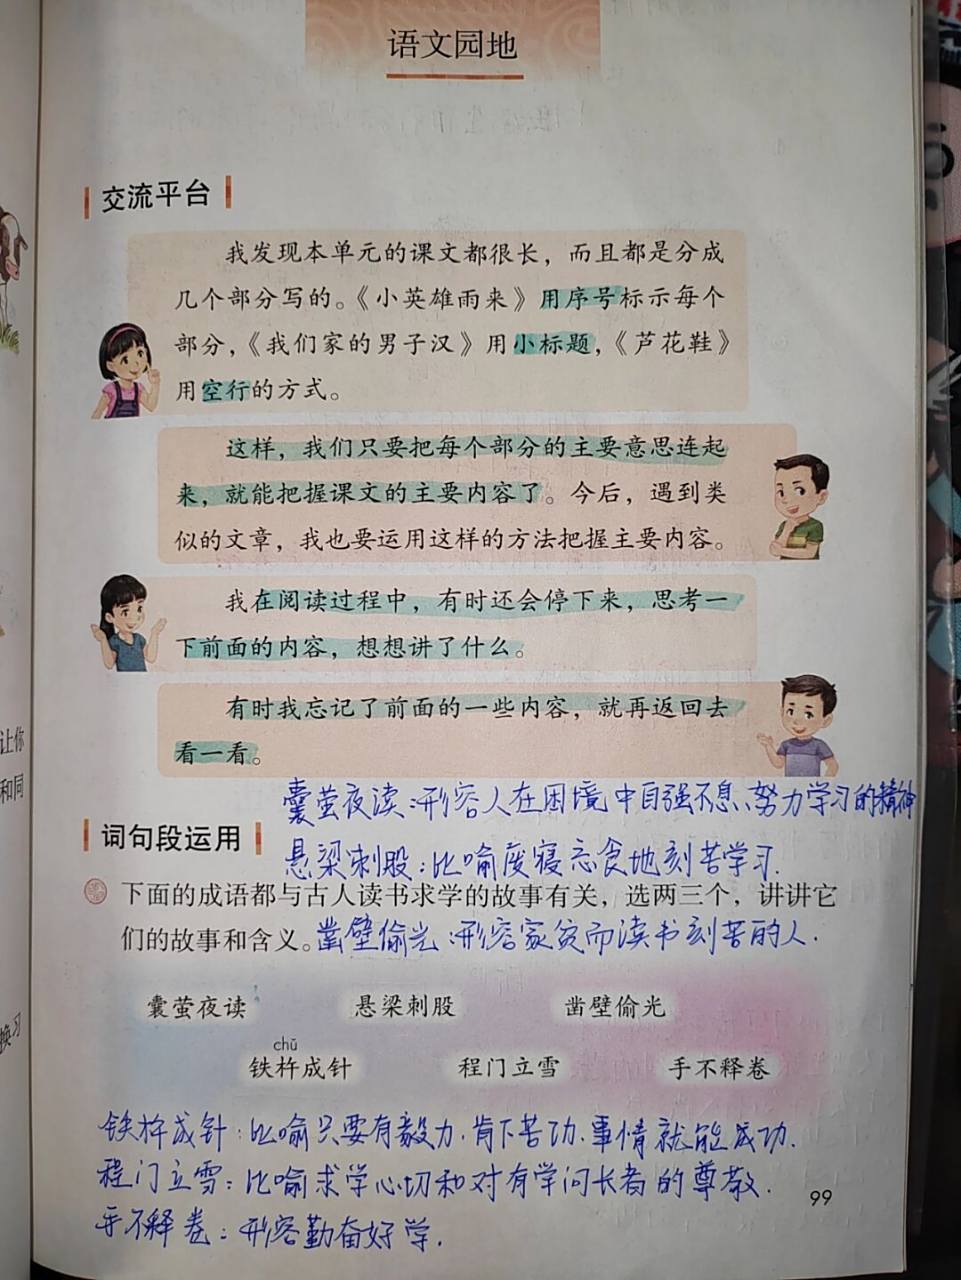 语文园地
交流平台
我发现本单元的课文都很长，而且都是分成
几个部分写的。《小英雄雨来》用序号标示每个
部分，《我们家的男子汉》用小标题，《芦花鞋》
用空行的方式。
这样，我们只要把每个部分的主要意思连起
来，就能把握课文的主要内容了。今后，遇到类
似的文章，我也要运用这样的方法把握主要内容。
我在阅读过程中，有时还会停下来，思考一
下前面的内容，想想讲了什么。
有时我忘记了前面的一些内容，就再返回去
看一看。
让你
和同
换习
囊萤夜读：形容人在困境中自强不息、努力学习的精神
词句段运用
悬梁刺股：比喻废寝忘食地刻苦学习.
下面的成语都与古人读书求学的故事有关，选两三个，讲讲它
们的故事和含义。凿壁偷光：形容家贫而读书刻苦的人.
囊萤夜读 悬梁刺股 凿壁偷光
chǔ
铁杵成针 程门立雪 手不释卷
铁杵成针：比喻只要有毅力.肯下苦功.事情就能成功.
程门立雪：比喻求学心切和对有学问长者的尊敬.
手不释卷：形容勤奋好学.
99